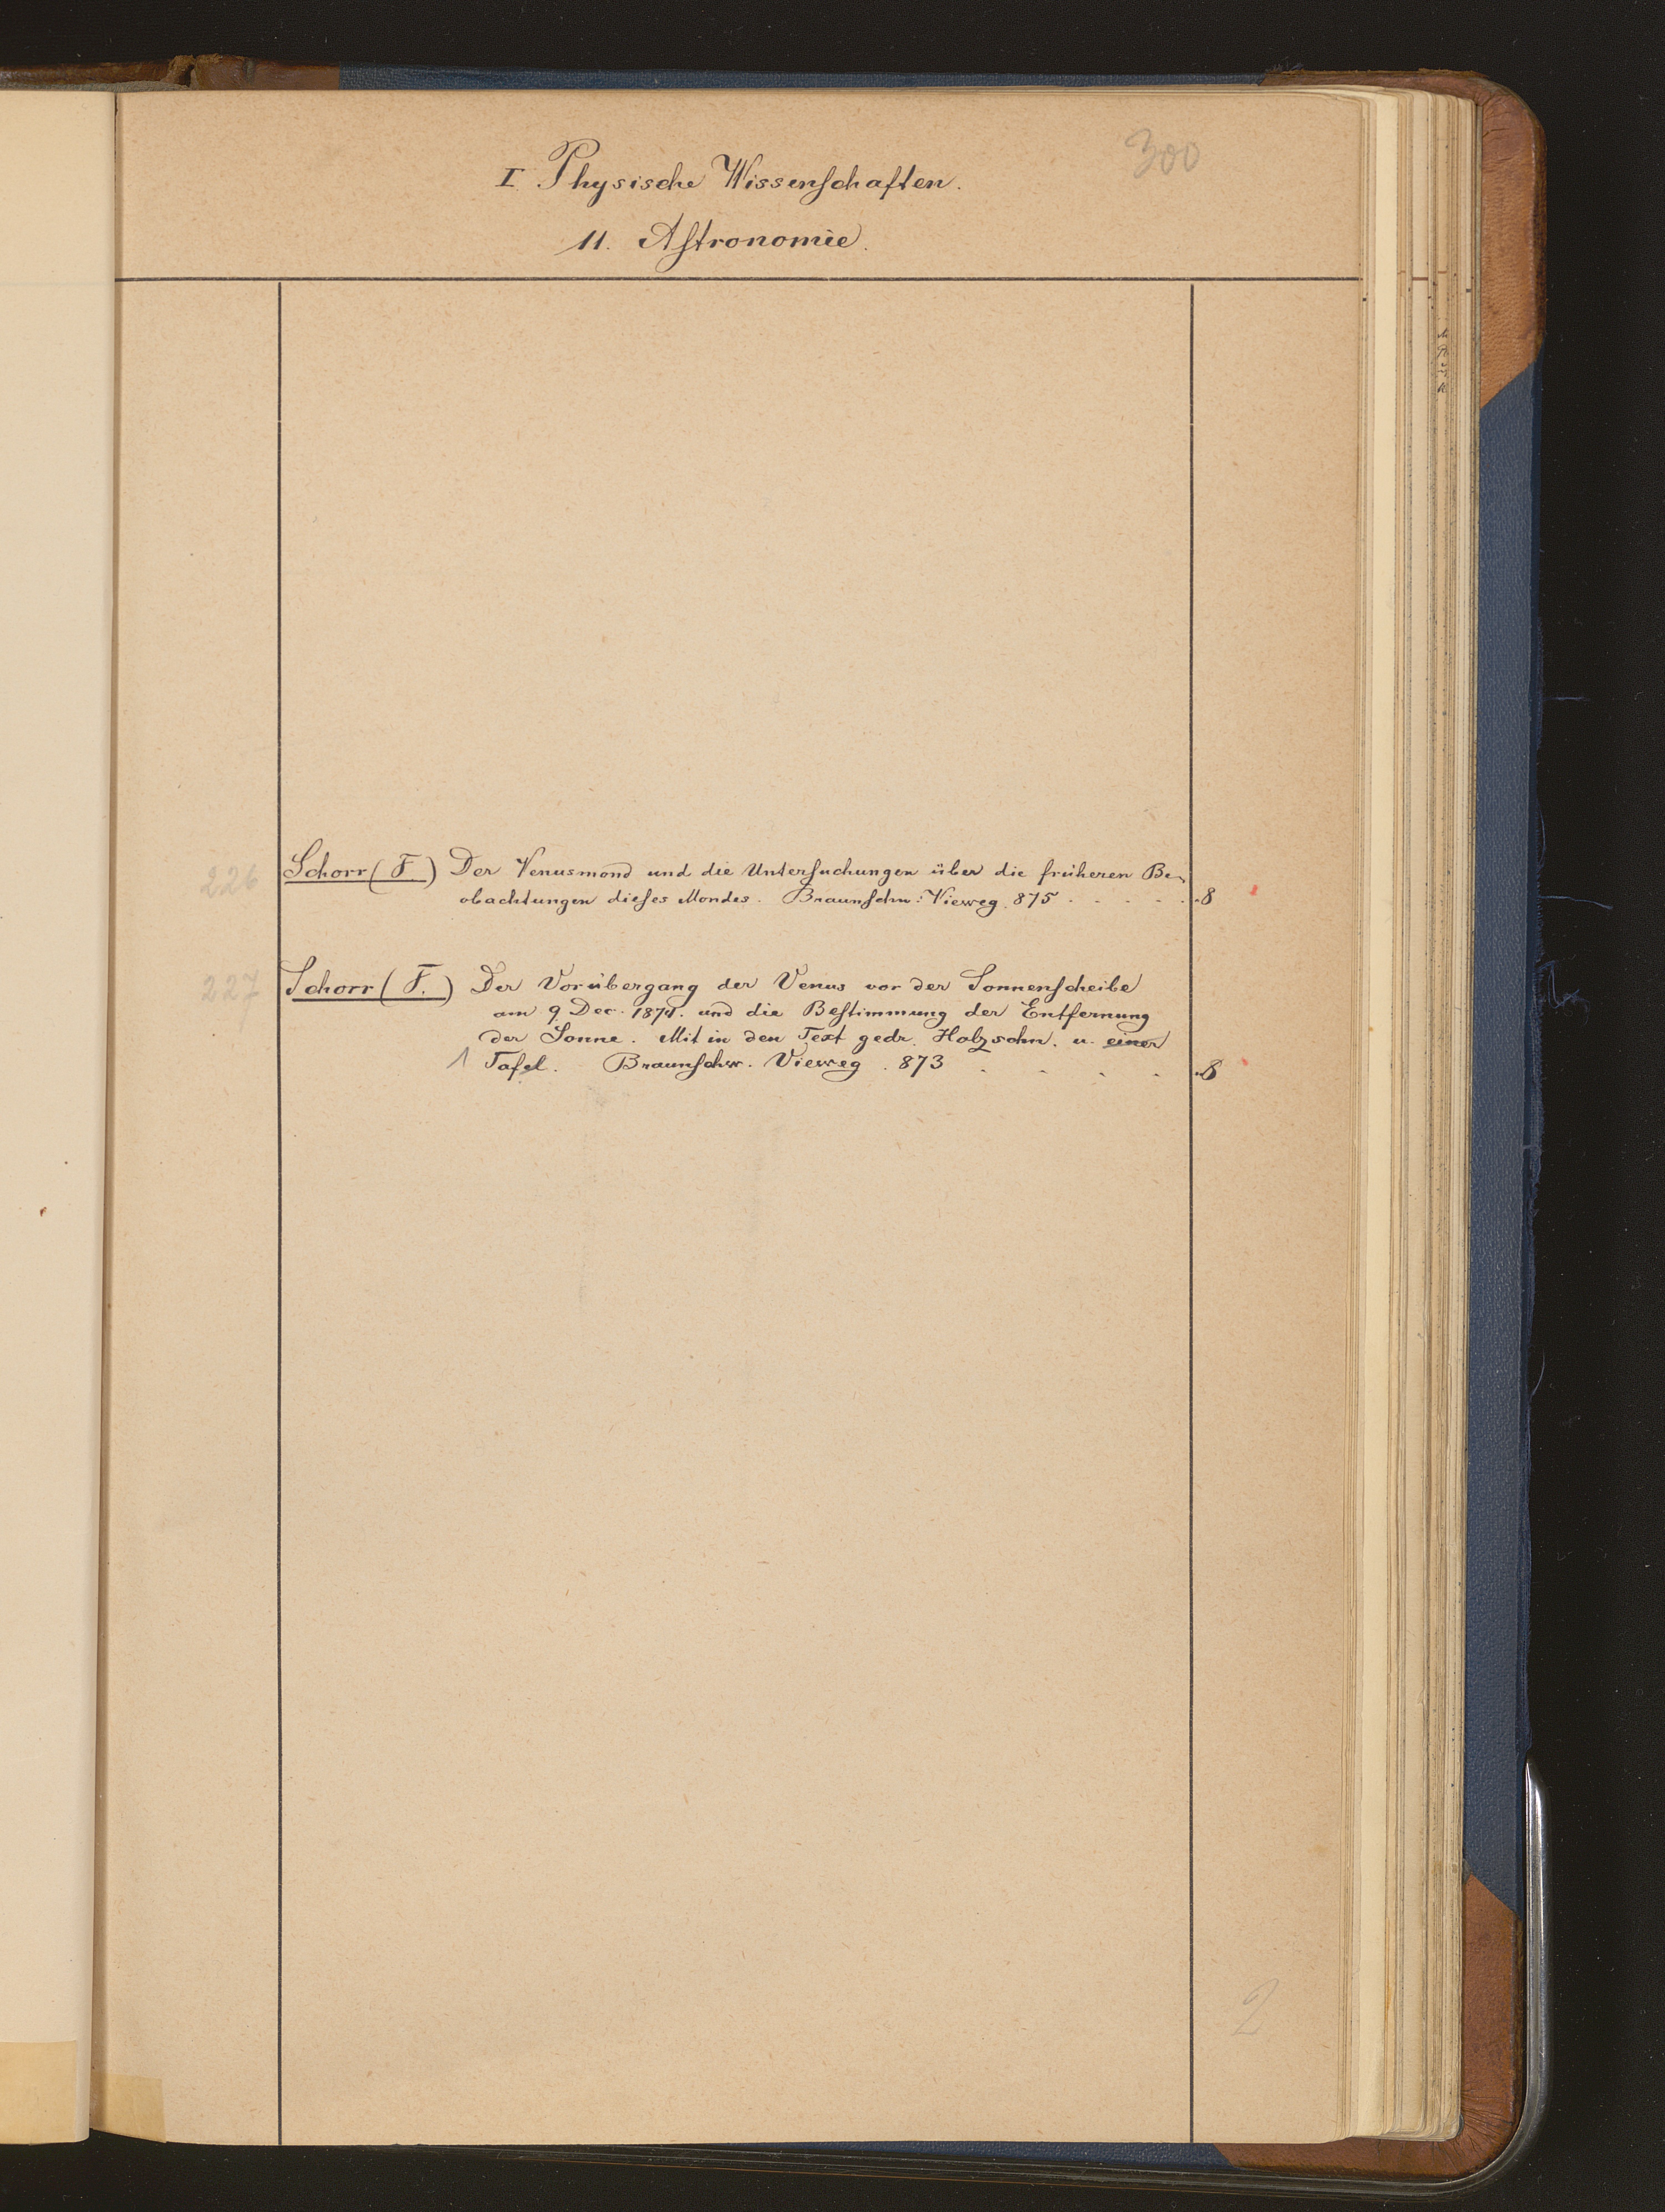 300
I Physische Wissenschaften.
11. Astronomie.
226 Schorr (F) Der Venusmond und die Untersuchungen über die früheren Be-
obachtungen dieses Mondes. Braunschw: Vieweg. 875 . . . . . 8
227 Schorr (F.) Der Vorübergang der Venus vor der Sonnenscheibe
am 9. Dec. 1874. und die Bestimmung der Entfernung
der Sonne. Mit in den Text gedr. Holzschn. u. einer
1 Tafel. Braunschw. Vieweg. 873 . . . . 8
2